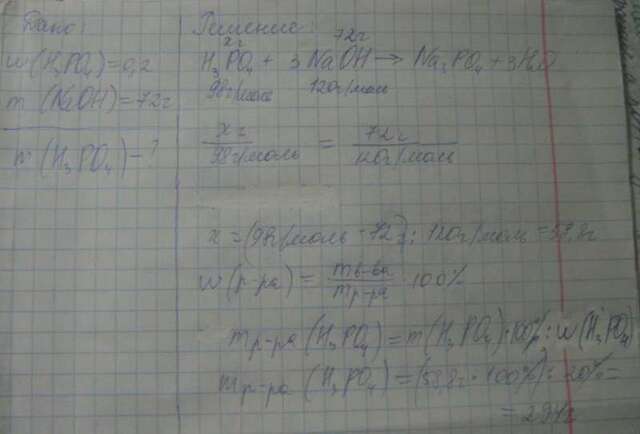 Дано:
Решение:
w(H₃PO₄)=0,2
m (NaOH)=72г
m (H₃PO₄)-?
xг 72г
H₃PO₄ + 3NaOH → Na₃PO₄+3H₂O
98г/моль 120г/моль
xг / 98г/моль = 72г / 120г/моль
x=(98г/моль · 72г) : 120г/моль = 58,8г
w(р-ра) = mв-ва / mр-ра · 100%
mр-ра (H₃PO₄)=m(H₃PO₄)·100% : w(H₃PO₄)
mр-ра (H₃PO₄)=(58,8г · 100%) : 20%=
=294г